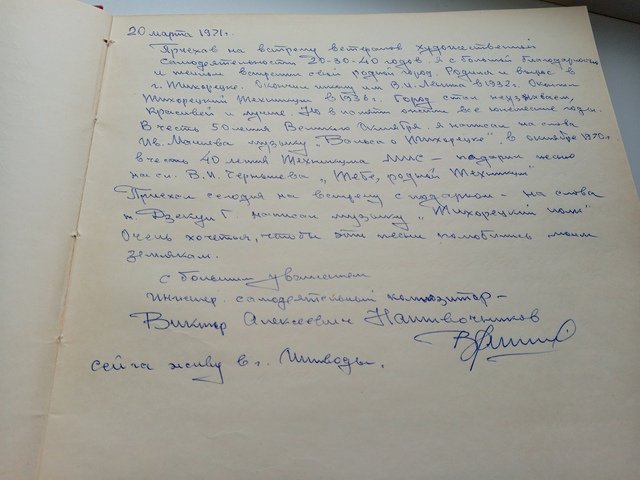 20 марта 1971г.
Приехав на встречу ветеранов художественной
самодеятельности 20-30-40 годов. я с большой благодарностью
и теплом встретил свой родной город. Родился и вырос в
г. Тихорецке. Окончил школу им В.И. Ленина в 1932г. Окончил
Тихорецкий Техникум в 1936г. Город стал неузнаваем,
красивей и лучше. Но в памяти опять все юношеские годы.
В честь 50 летия Великого Октября я написал на слова
Ив. музыку "Вальс о Тихорецке", в октябре 1970г
в честь 40 летия Техникума – подарил песню
на сл. В.И. Чернышева "Тебе, родной Техникум"
Приехал сегодня на встречу с подарком – на слова
т. Дзекун Г. написал музыку "Тихорецкий полк"
Очень хочется, чтобы эти песни полюбились моим
землякам.
с большим уважением
инженер. самодеятельный композитор –
Виктор Алексеевич
живу в г.